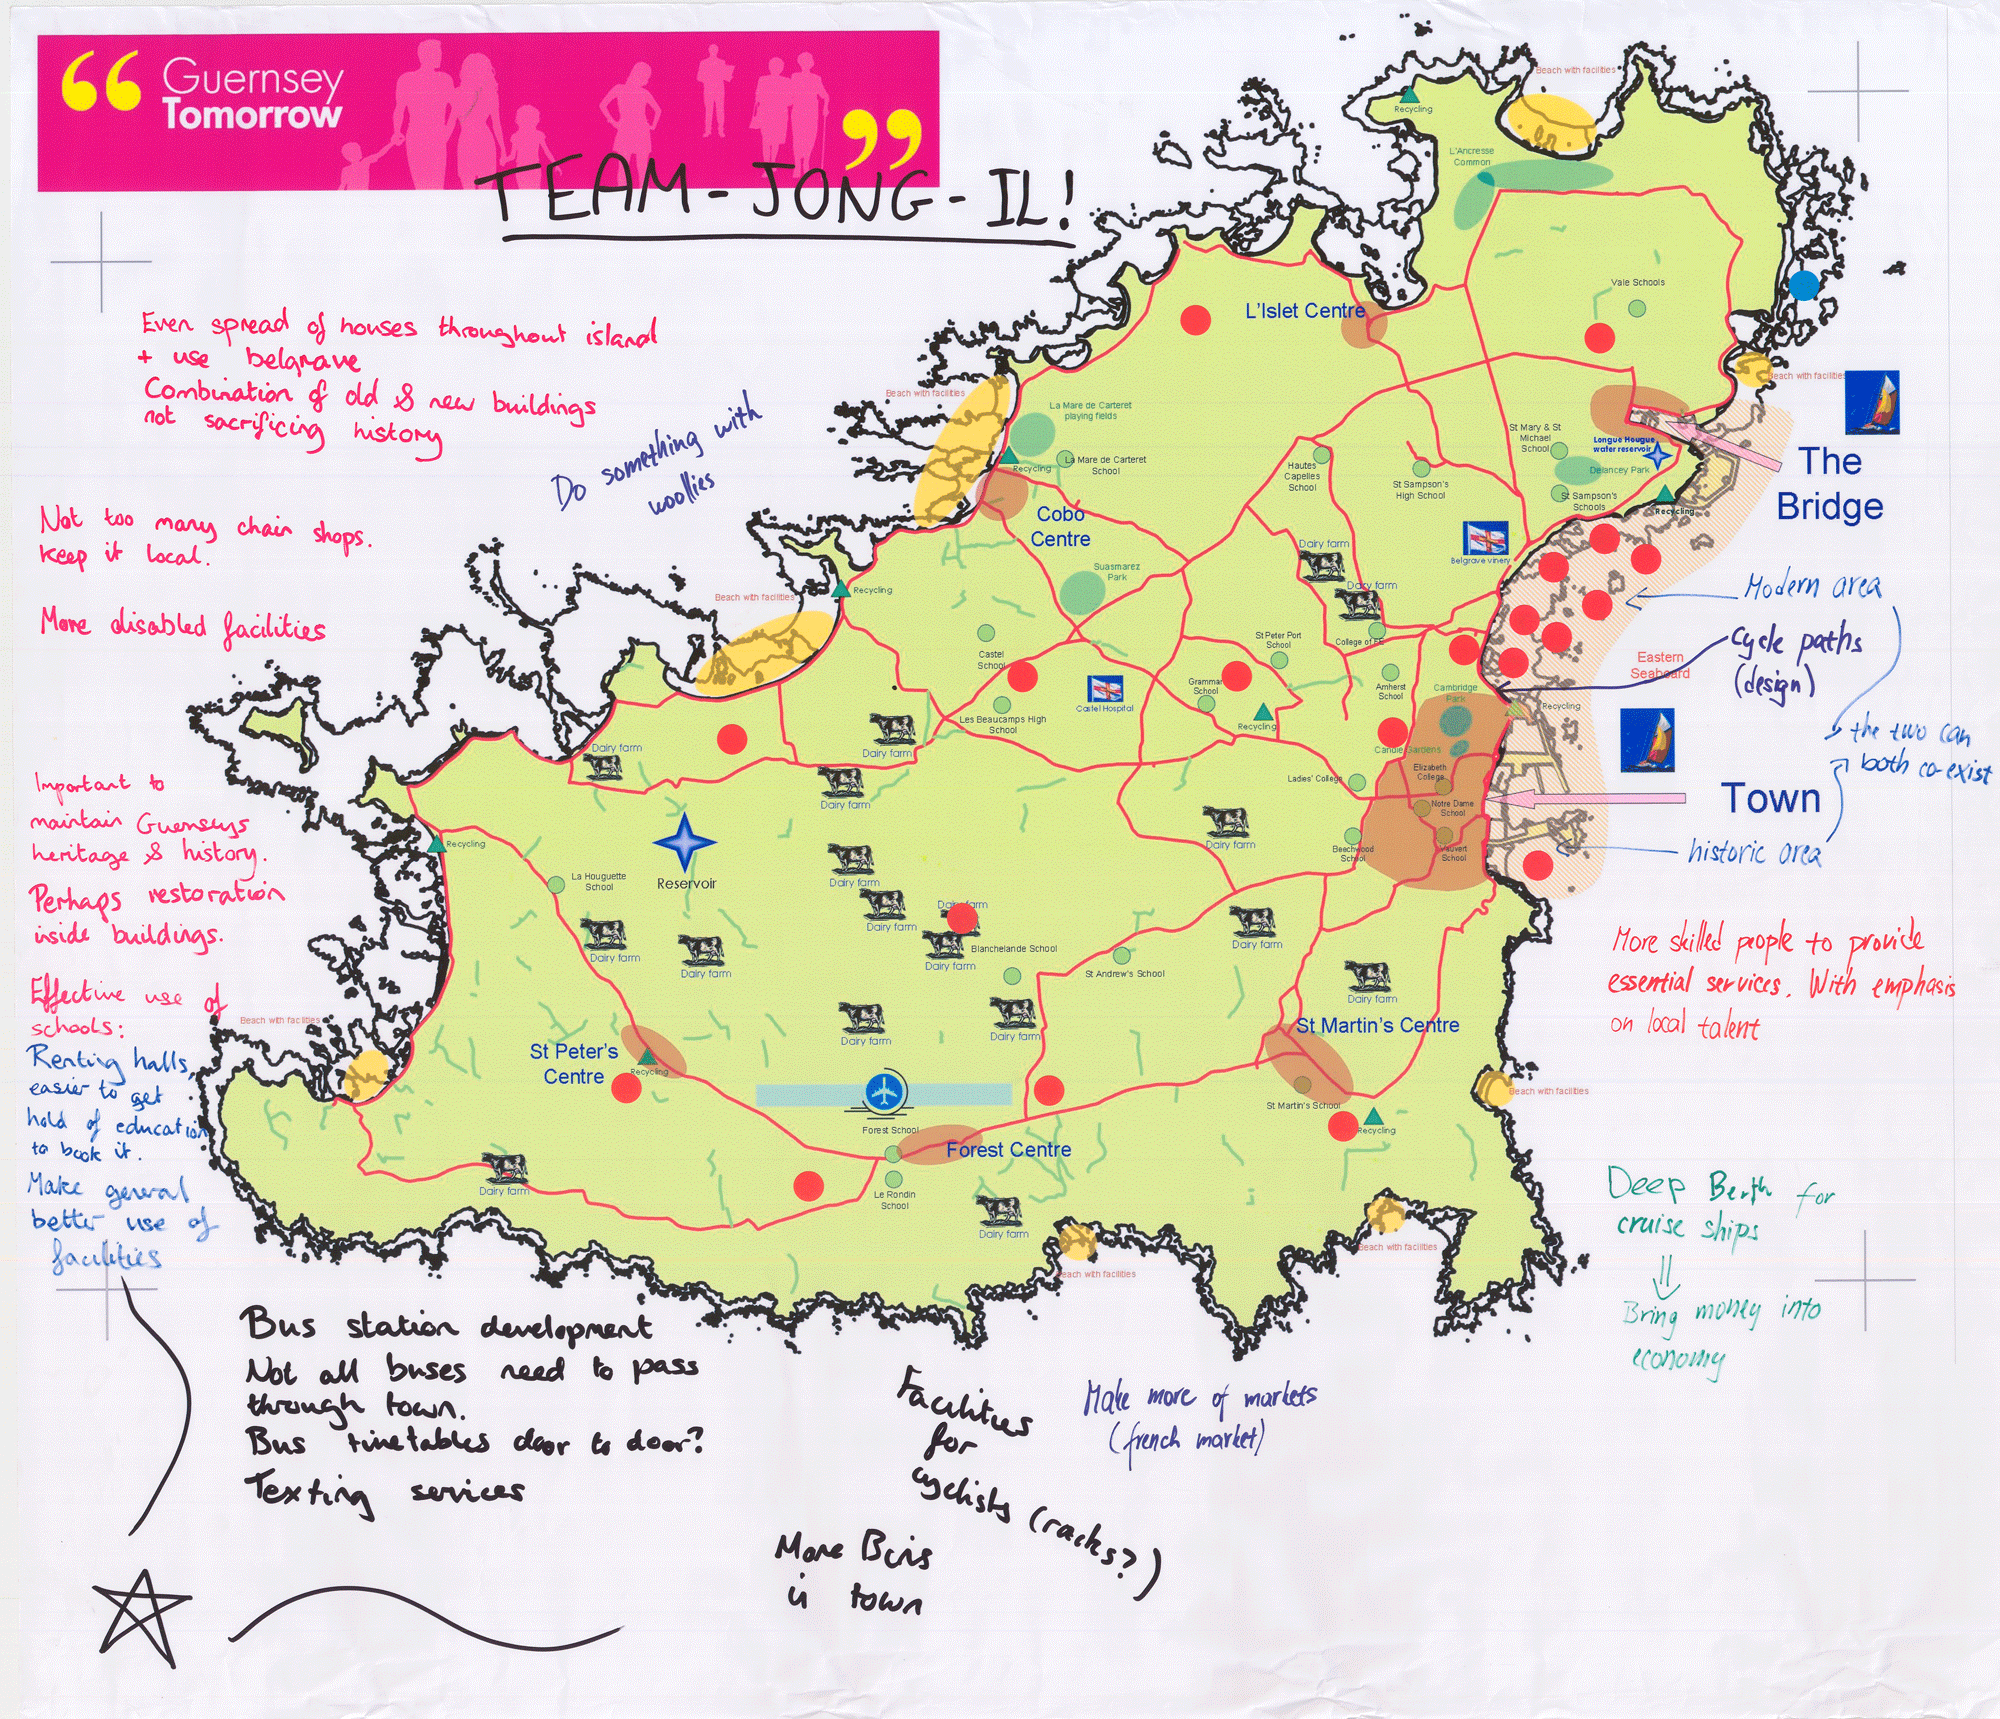 “ Guernsey
Tomorrow ”
TEAM-JONG-IL!
Even spread of houses throughout island
+ use belgrave
Combination of old & new buildings
not sacrificing history
Do something with
woollies
Not too many chain shops.
keep it local.
More disabled facilities
Important to
maintain Guernseys
heritage & history.
Perhaps restoration
inside buildings.
Effective use of
schools:
Renting halls,
easier to get
hold of education
to book it.
Make general
better use of
facilities
Bus station development
Not all buses need to pass
through town.
Bus timetables door to door?
Texting services
Facilities
for
cyclists (racks?)
More Bins
in town
Make more of markets
(french market)
Beach with facilities
Recycling
L'Ancresse
Common
Vale Schools
L'Islet Centre
Beach with facilities
Beach with facilities
La Mare de Carteret
playing fields
La Mare de Carteret
School
Recycling
Cobo
Centre
Hautes
Capelles
School
St Sampson's
High School
St Mary & St
Michael
School
Longue Hougue
water reservoir
Delancey Park
St Sampson's
Schools
Recycling
The
Bridge
Belgrave vinery
Dairy farm
Dairy farm
College of FE
Suasmarez
Park
Recycling
Beach with facilities
Castel
School
St Peter Port
School
Grammar
School
Amherst
School
Cambridge
Park
Eastern
Seaboard
Recycling
Modern area
Cycle paths
(design)
the two can
both co-exist
Town
historic area
Castel Hospital
Les Beaucamps High
School
Recycling
Candie Gardens
Elizabeth
College
Ladies' College
Notre Dame
School
Beechwood
School
Vauvert
School
Dairy farm
Dairy farm
Dairy farm
Dairy farm
Recycling
La Houguette
School
Reservoir
Dairy farm
Dairy farm
Dairy farm
Dairy farm
Dairy farm
Dairy farm
Blanchelande School
St Andrew's School
Dairy farm
Dairy farm
Dairy farm
Dairy farm
St Martin's Centre
St Martin's School
Recycling
Beach with facilities
St Peter's
Centre
Recycling
Beach with facilities
Forest School
Forest Centre
Le Rondin
School
Dairy farm
Dairy farm
Beach with facilities
Beach with facilities
More skilled people to provide
essential services. With emphasis
on local talent
Deep Berth for
cruise ships
Bring money into
economy